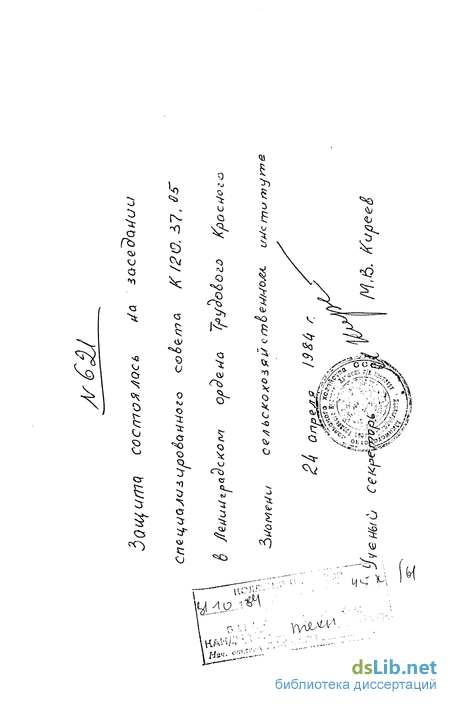 N 621
Защита состоялась на заседании
специализированного совета К 120.37.05
в Ленинградском ордена Трудового Красного
Знамени сельскохозяйственном институте
24 апреля 1984 г.
Ученый секретарь М.В. Киреев
dsLib.net
библиотека диссертаций